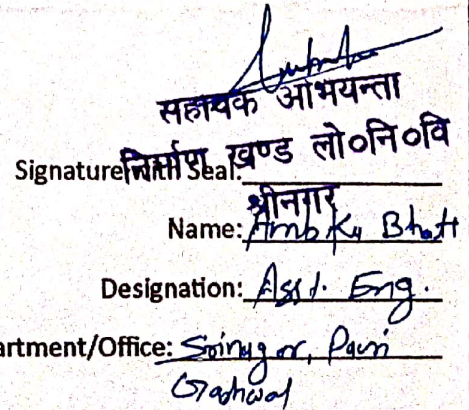 सहायक अभियन्ता
निर्माण खण्ड लो०नि०वि
Signature with Seal:
श्रीनगर
Name: Bhatt
Designation: Asst. Eng.
artment/Office: Srinagar, Pauri
Garhwal